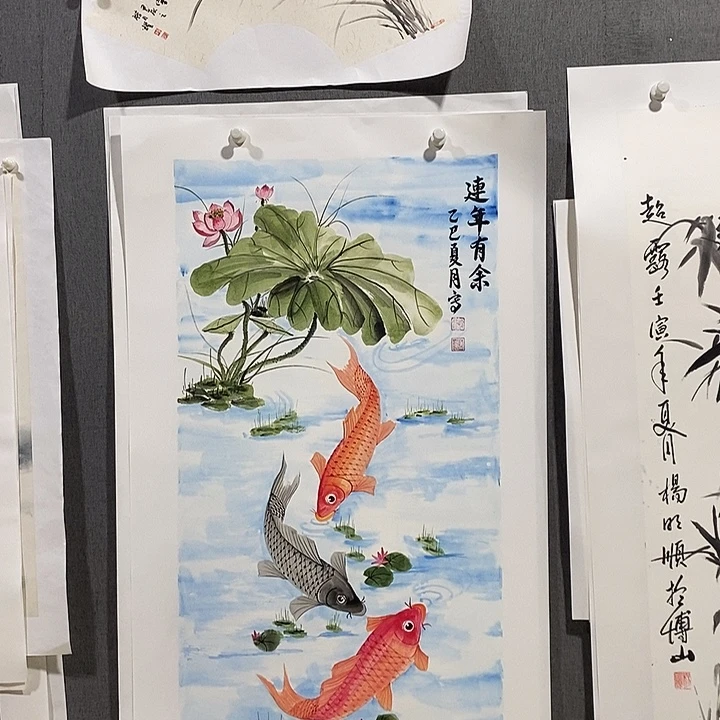 連年有余
乙巳夏月寫
超露
壬寅年夏月楊明順於博山